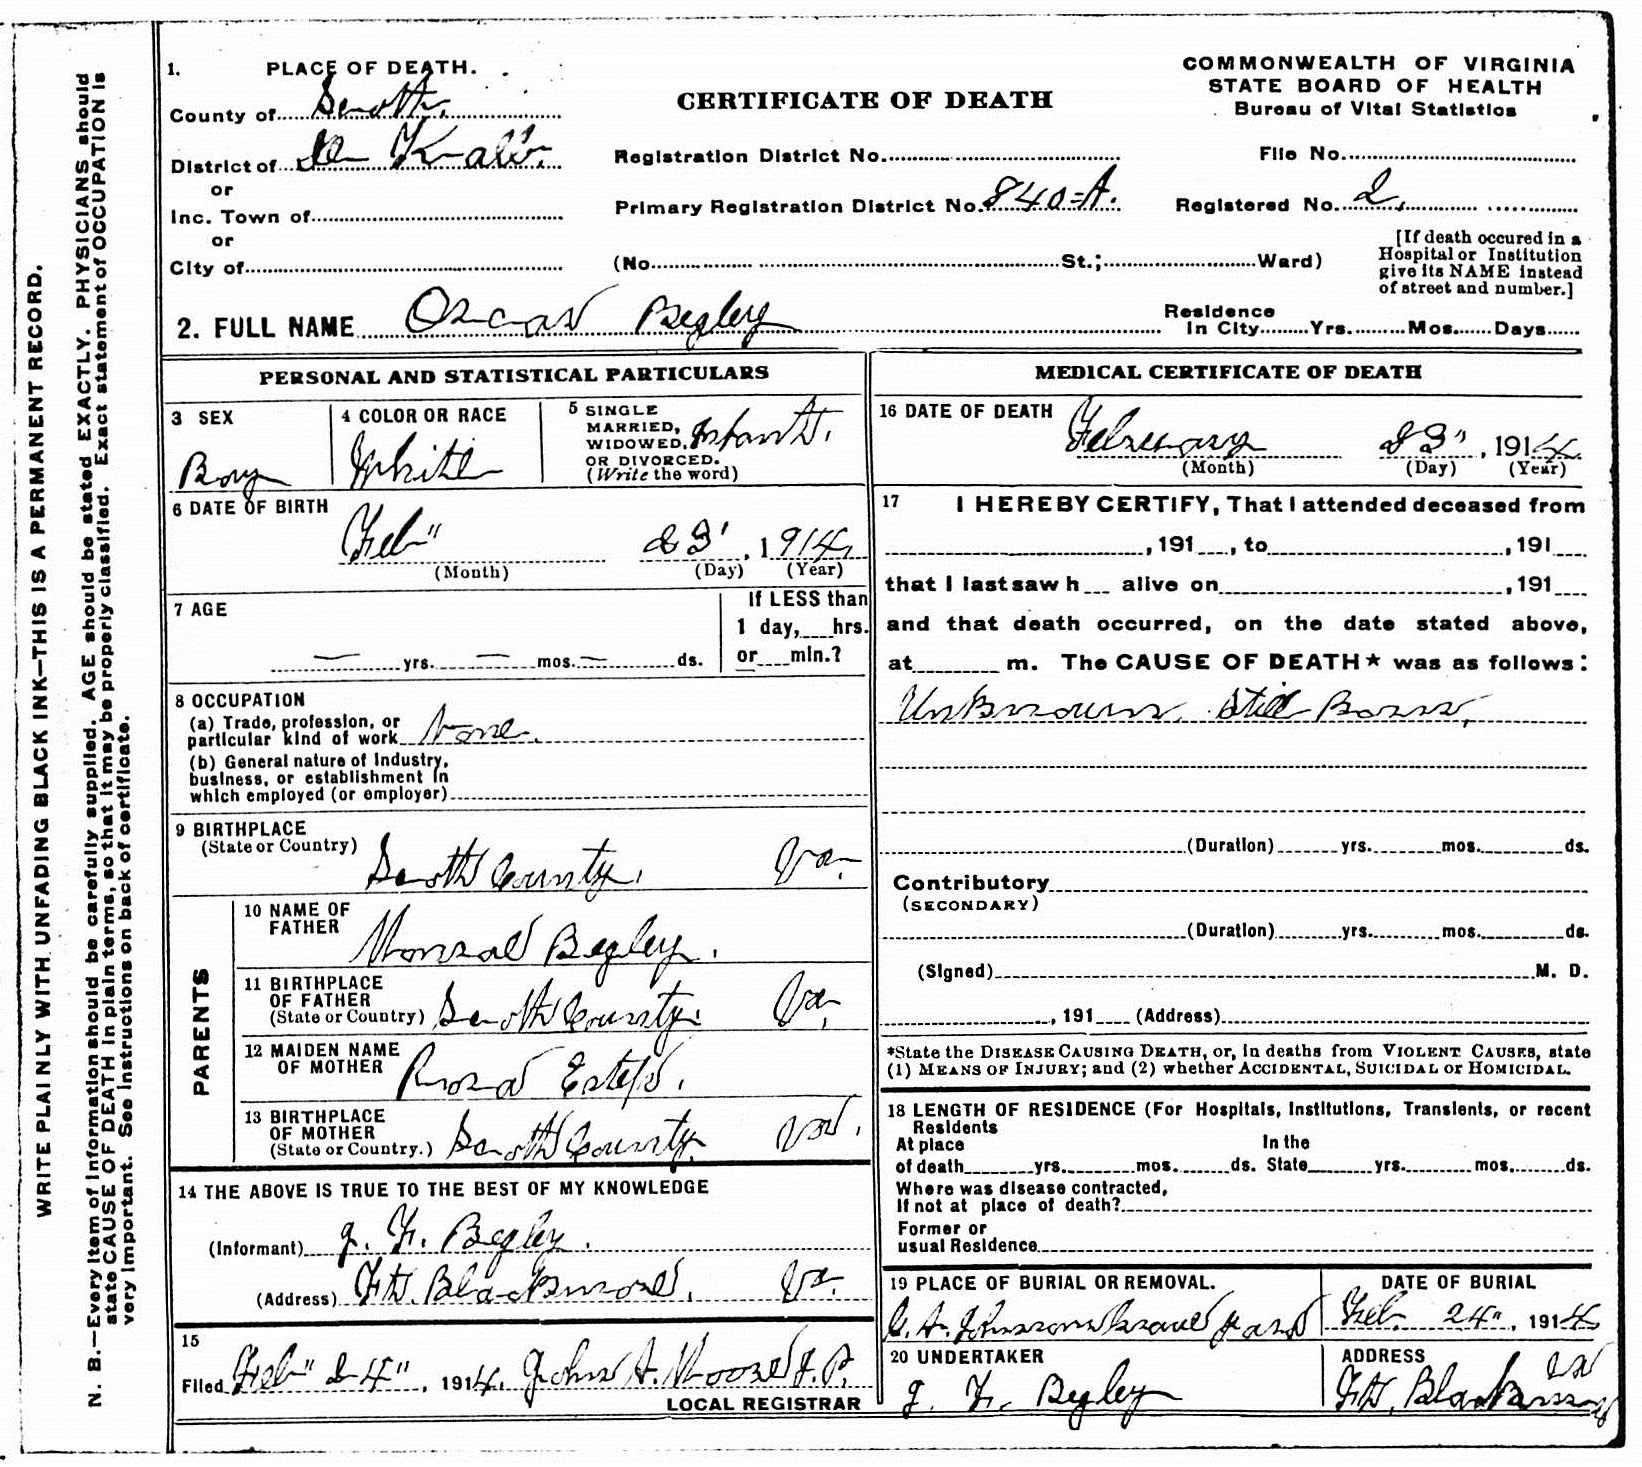 WRITE PLAINLY WITH UNFADING BLACK INK—THIS IS A PERMANENT RECORD.
N. B.—Every item of information should be carefully supplied. AGE should be stated EXACTLY. PHYSICIANS should
state CAUSE OF DEATH in plain terms, so that it may be properly classified. Exact statement of OCCUPATION is
very important. See instructions on back of certificate.
1. PLACE OF DEATH.
County of Scott.
District of De Kalb.
or
Inc. Town of
or
City of
CERTIFICATE OF DEATH
COMMONWEALTH OF VIRGINIA
STATE BOARD OF HEALTH
Bureau of Vital Statistics
Registration District No.
File No.
Primary Registration District No. 840=A.
Registered No. 2,
(No. St.; Ward)
[If death occured in a
Hospital or Institution
give its NAME instead
of street and number.]
2. FULL NAME Oscar Begley
Residence
In City Yrs. Mos. Days
PERSONAL AND STATISTICAL PARTICULARS
3 SEX
Boy
4 COLOR OR RACE
White
5 SINGLE
MARRIED,
WIDOWED,
OR DIVORCED.
(Write the word)
Infant.
6 DATE OF BIRTH
Feb" 23', 1914,
(Month) (Day) (Year)
7 AGE
— yrs. — mos. — ds.
If LESS than
1 day, hrs.
or min.?
8 OCCUPATION
(a) Trade, profession, or
particular kind of work None.
(b) General nature of Industry,
business, or establishment in
which employed (or employer)
9 BIRTHPLACE
(State or Country)
Scott County. Va.
PARENTS
10 NAME OF
FATHER
Begley.
11 BIRTHPLACE
OF FATHER
(State or Country) Scott County. Va,
12 MAIDEN NAME
OF MOTHER
Rosa Estep.
13 BIRTHPLACE
OF MOTHER
(State or Country.) Scott County. Va.
14 THE ABOVE IS TRUE TO THE BEST OF MY KNOWLEDGE
(Informant) J. F. Begley.
(Address) Ft. Blackmore, Va.
15
Filed Feb" 24", 1914, John A. Moore J.P.
LOCAL REGISTRAR
MEDICAL CERTIFICATE OF DEATH
16 DATE OF DEATH
February 23", 1914
(Month) (Day) (Year)
17 I HEREBY CERTIFY, That I attended deceased from
, 191 , to , 191
that I last saw h alive on , 191
and that death occurred, on the date stated above,
at m. The CAUSE OF DEATH* was as follows:
Unknown, Still Born,
(Duration) yrs. mos. ds.
Contributory
(SECONDARY)
(Duration) yrs. mos. ds.
(Signed) M. D.
, 191 (Address)
*State the DISEASE CAUSING DEATH, or, in deaths from VIOLENT CAUSES, state
(1) MEANS OF INJURY; and (2) whether ACCIDENTAL, SUICIDAL or HOMICIDAL.
18 LENGTH OF RESIDENCE (For Hospitals, Institutions, Transients, or recent
Residents
At place In the
of death yrs. mos. ds. State yrs. mos. ds.
Where was disease contracted,
If not at place of death?
Former or
usual Residence
19 PLACE OF BURIAL OR REMOVAL.
Johnson Grave yard
DATE OF BURIAL
Feb. 24", 1914
20 UNDERTAKER
J. F. Begley
ADDRESS
Va
Ft. Blackmore